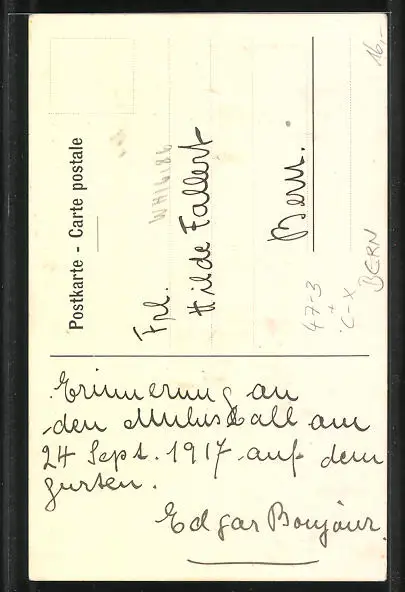 Postkarte - Carte postale
Frl.
Hilde Fallert
Bern.
WH16186
16,-
47-3
+
C-X
BERN
Erinnerung an
den Mulusball am
24 Sept. 1917 auf dem
Gurten.
Edgar Bonjour.